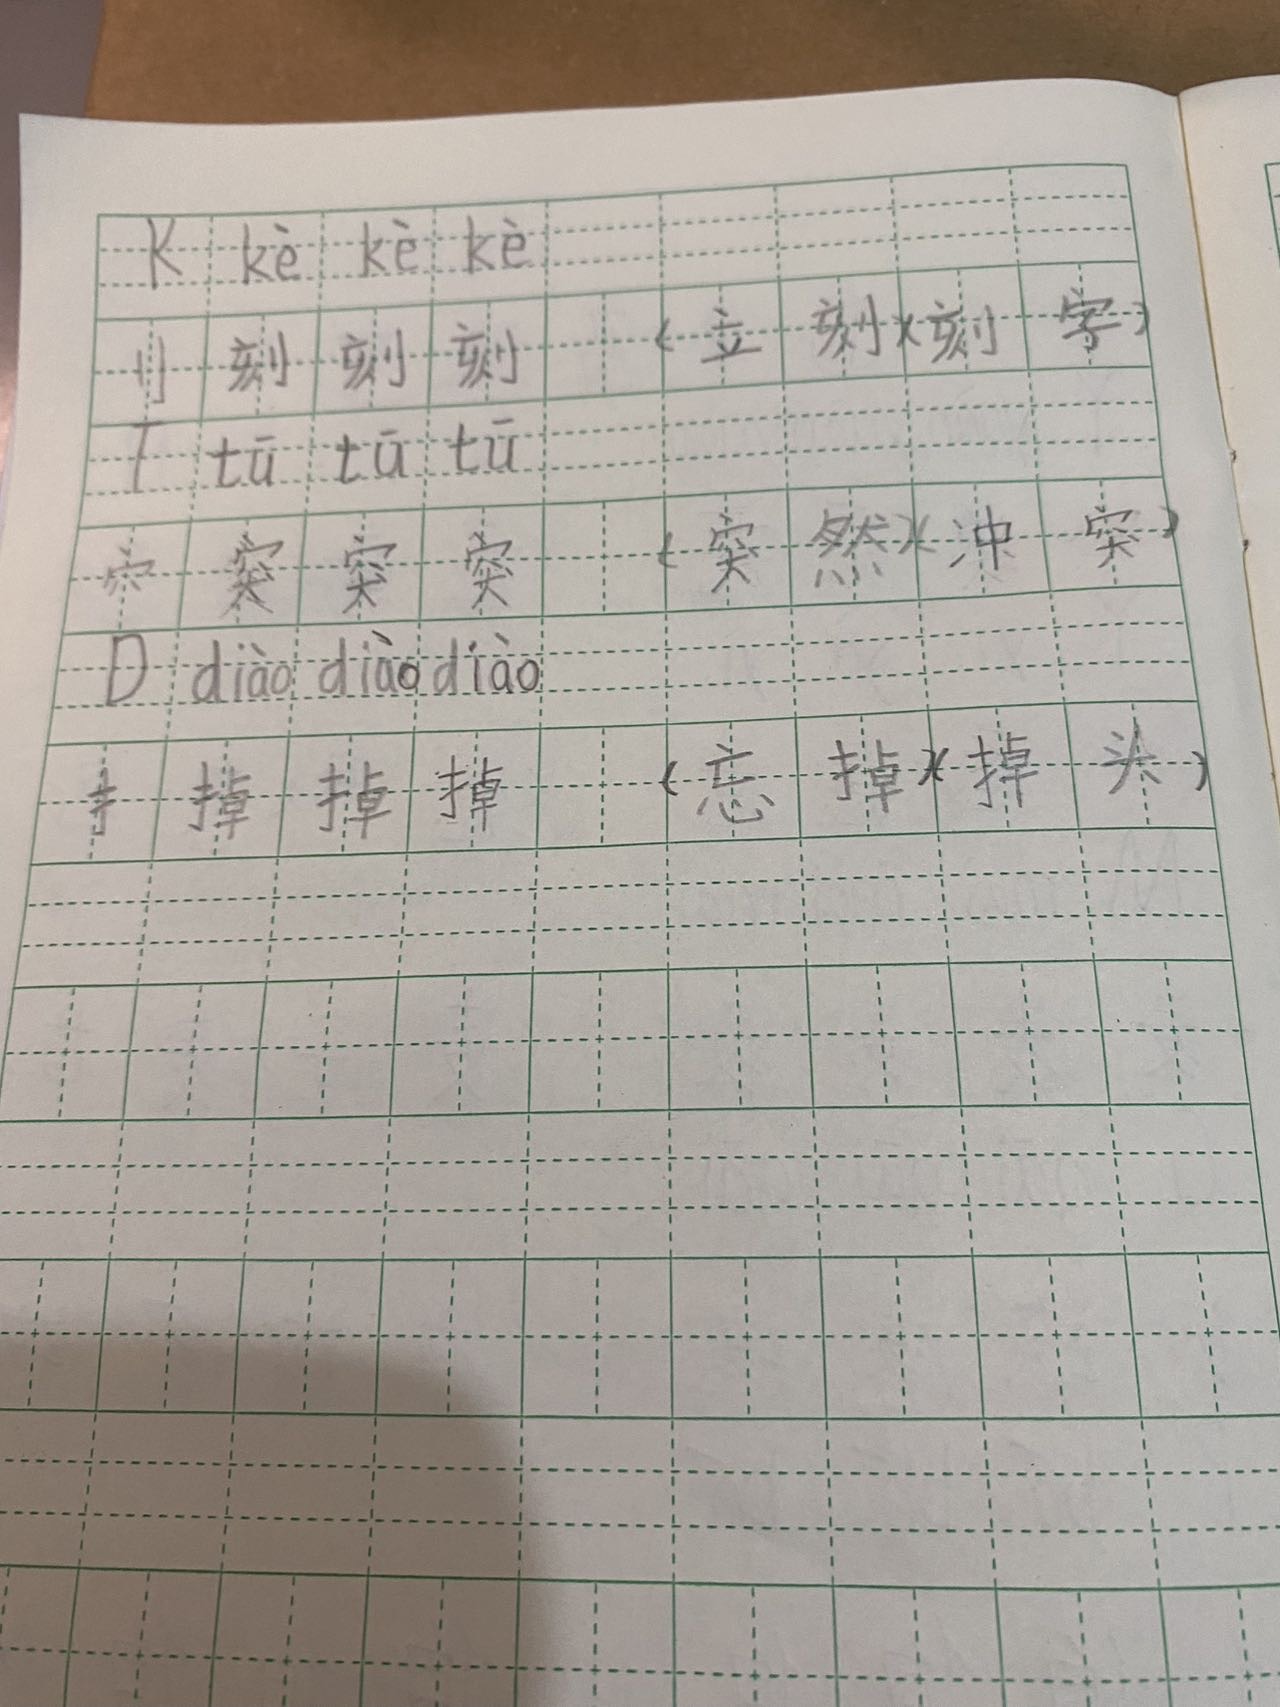 K kè kè kè
刂 刻 刻 刻 (立刻)(刻字)
T tū tū tū
穴 突 突 突 (突然)(冲突)
D diào diào diào
扌 掉 掉 掉 (忘掉)(掉头)